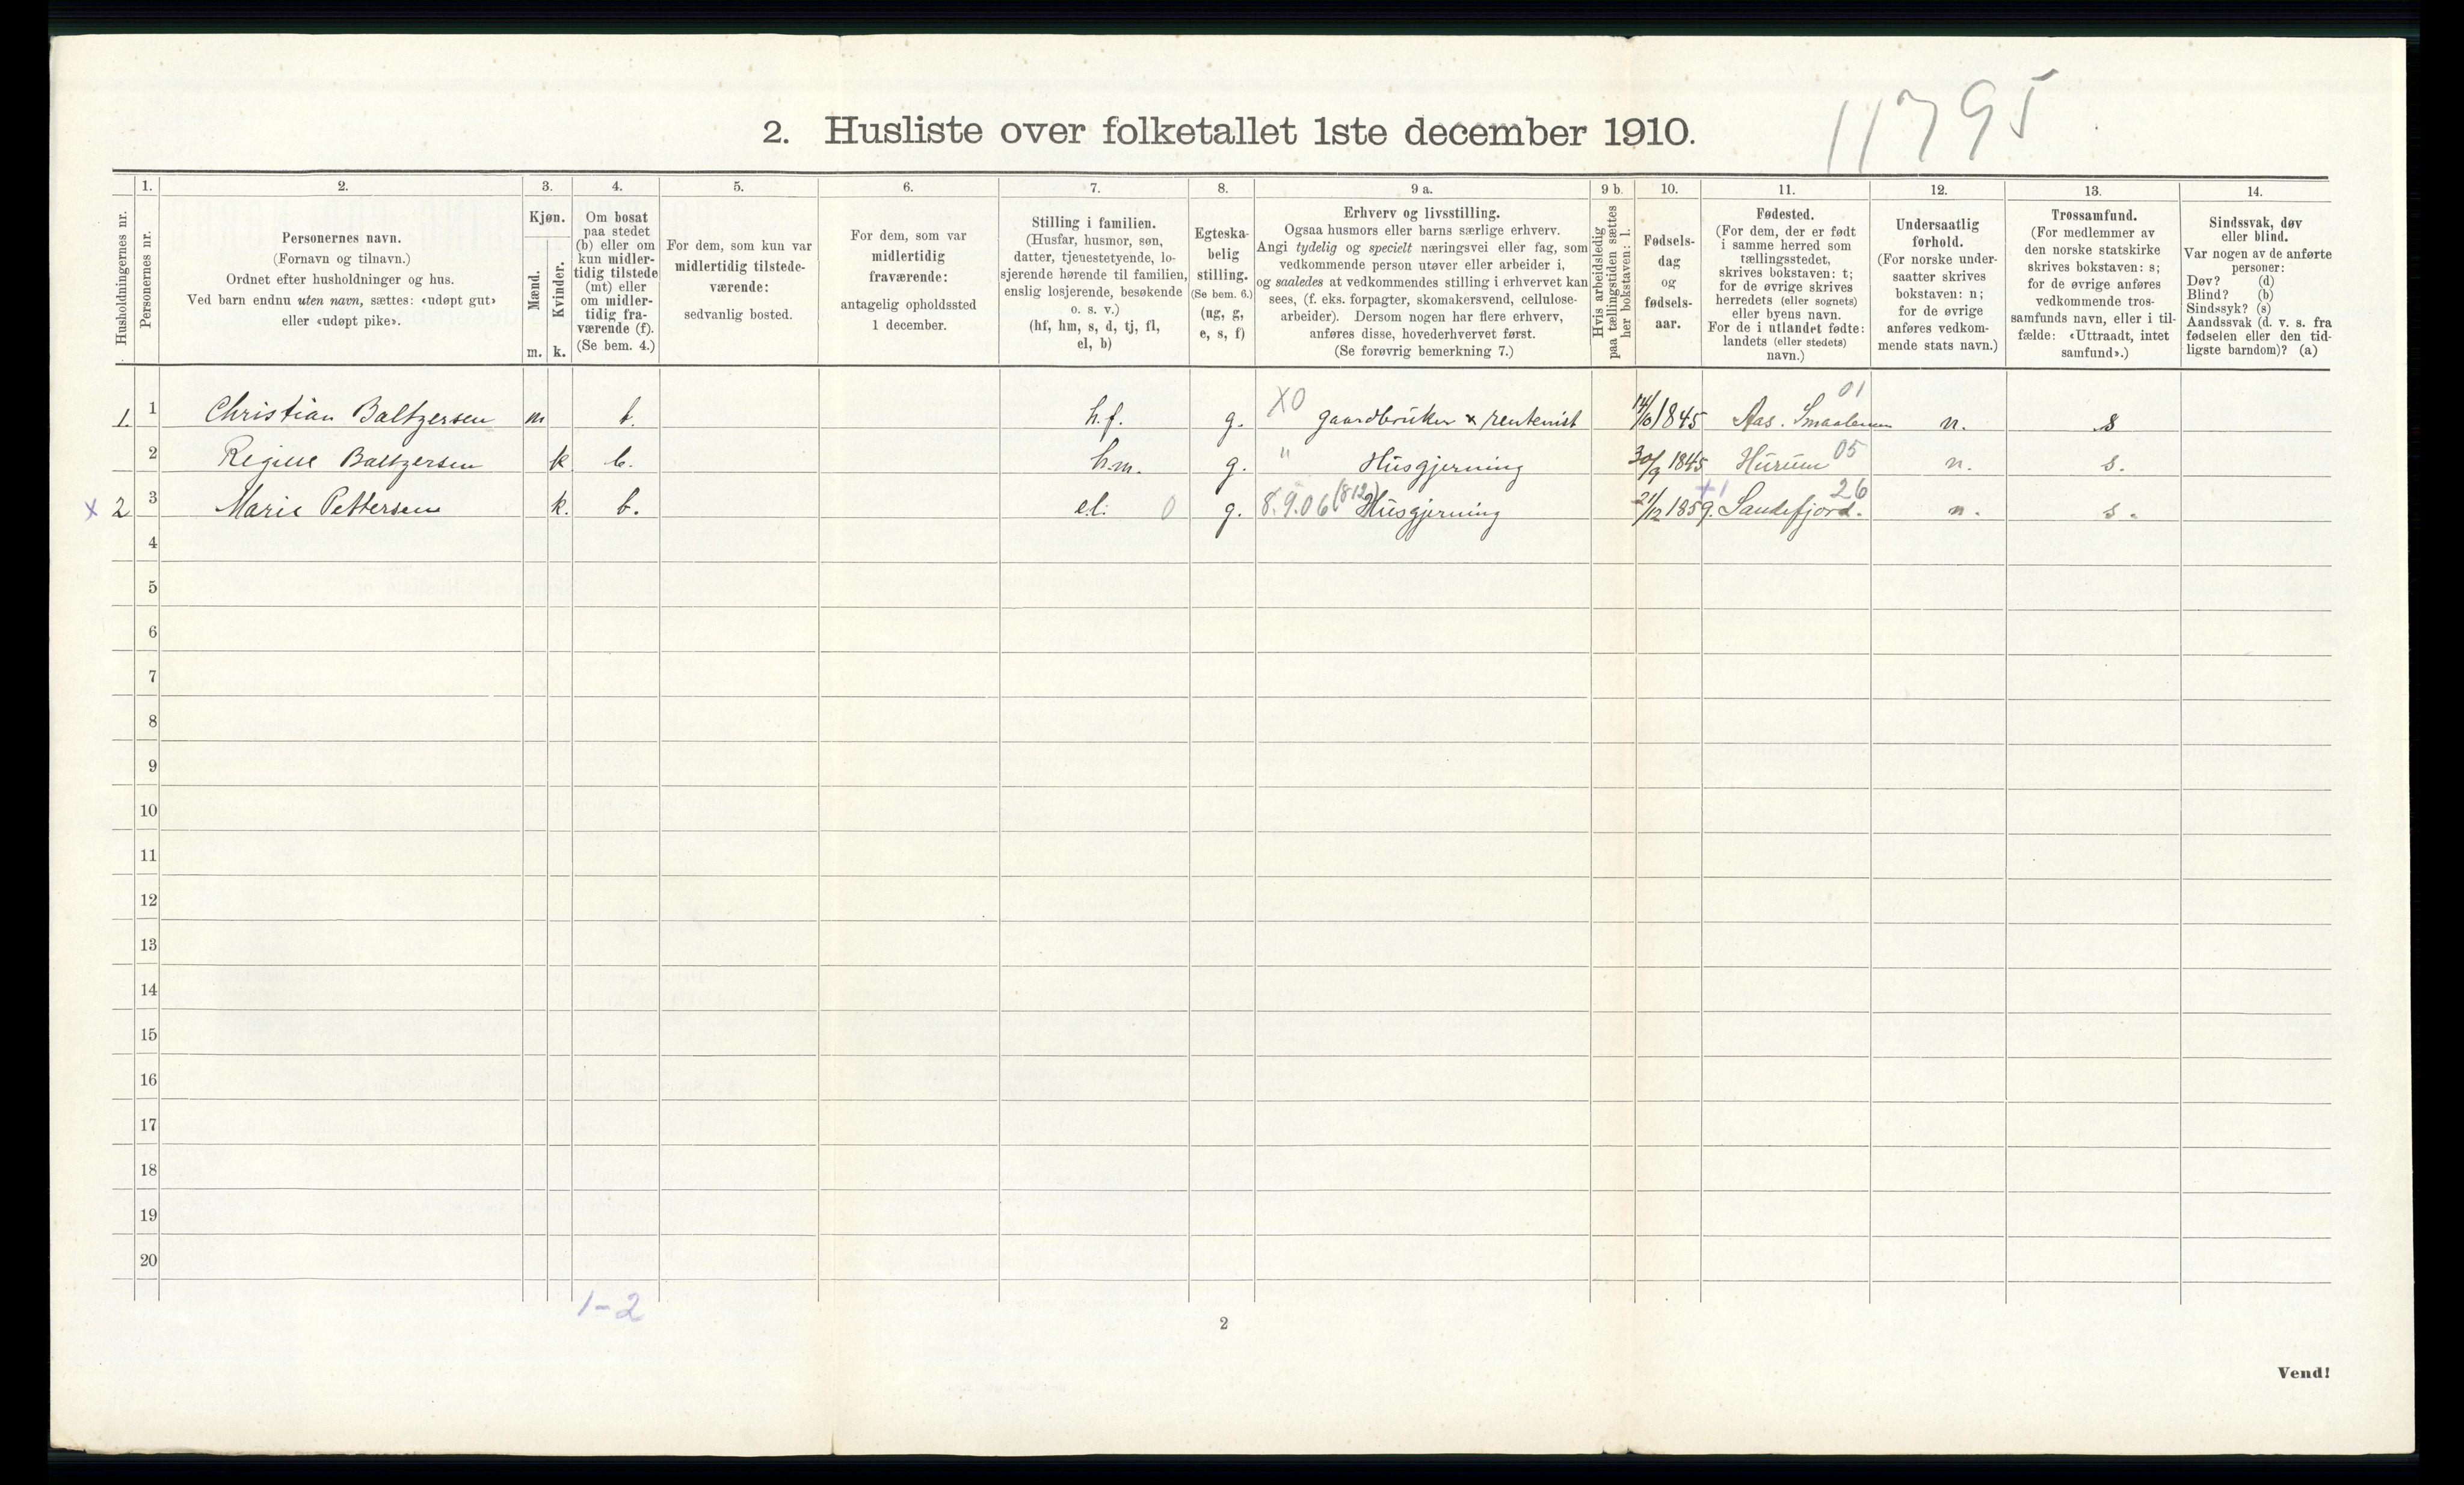 11795
2. Husliste over folketallet 1ste december 1910.
Husholdningernes nr.
1.
Personernes nr.
2.
Personernes navn.
(Fornavn og tilnavn.)
Ordnet efter husholdninger og hus.
Ved barn endnu uten navn, sættes: «udøpt gut»
eller «udøpt pike».
3.
Kjøn.
Mænd.
Kvinder.
m. k.
4.
Om bosat
paa stedet
(b) eller om
kun midler-
tidig tilstede
(mt) eller
om midler-
tidig fra-
værende (f).
(Se bem. 4.)
5.
For dem, som kun var
midlertidig tilstede-
værende:
sedvanlig bosted.
6.
For dem, som var
midlertidig
fraværende:
antagelig opholdssted
1 december.
7.
Stilling i familien.
(Husfar, husmor, søn,
datter, tjenestetyende, lo-
sjerende hørende til familien,
enslig losjerende, besøkende
o. s. v.)
(hf, hm, s, d, tj, fl,
el, b)
8.
Egteska-
belig
stilling.
(Se bem. 6.)
(ug, g,
e, s, f)
9 a.
Erhverv og livsstilling.
Ogsaa husmors eller barns særlige erhverv.
Angi tydelig og specielt næringsvei eller fag, som
vedkommende person utøver eller arbeider i,
og saaledes at vedkommendes stilling i erhvervet kan
sees, (f. eks. forpagter, skomakersvend, cellulose-
arbeider). Dersom nogen har flere erhverv,
anføres disse, hovederhvervet først.
(Se forøvrig bemerkning 7.)
9 b.
Hvis arbeidsledig
paa tællingstiden sættes
her bokstaven: l.
10.
Fødsels-
dag
og
fødsels-
aar.
11.
Fødested.
(For dem, der er født
i samme herred som
tællingsstedet,
skrives bokstaven: t;
for de øvrige skrives
herredets (eller sognets)
eller byens navn.
For de i utlandet fødte:
landets (eller stedets)
navn.)
12.
Undersaatlig
forhold.
(For norske under-
saatter skrives
bokstaven: n;
for de øvrige
anføres vedkom-
mende stats navn.)
13.
Trossamfund.
(For medlemmer av
den norske statskirke
skrives bokstaven: s;
for de øvrige anføres
vedkommende tros-
samfunds navn, eller i til-
fælde: «Uttraadt, intet
samfund».)
14.
Sindssvak, døv
eller blind.
Var nogen av de anførte
personer:
Døv? (d)
Blind? (b)
Sindssyk? (s)
Aandssvak (d. v. s. fra
fødselen eller den tid-
ligste barndom)? (a)
1. 1 Christian Baltzersen m b. h.f. g. X0 gaardbruker x rentenist 1845 Aas. Smaalenene 01 n. s
2 Regine Baltzersen k b. h.m. g. " Husgjerning 30/9 1845 Hurum 05 n. s.
x 2 3 Marie Pettersen k. b. e.l. 0 g. 8.9.06 (812) Husgjerning 21/12 1859. +1 Sandefjord. 26 n. s.
4
5
6
7
8
9
10
11
12
13
14
15
16
17
18
19
20
1-2
2
Vend!